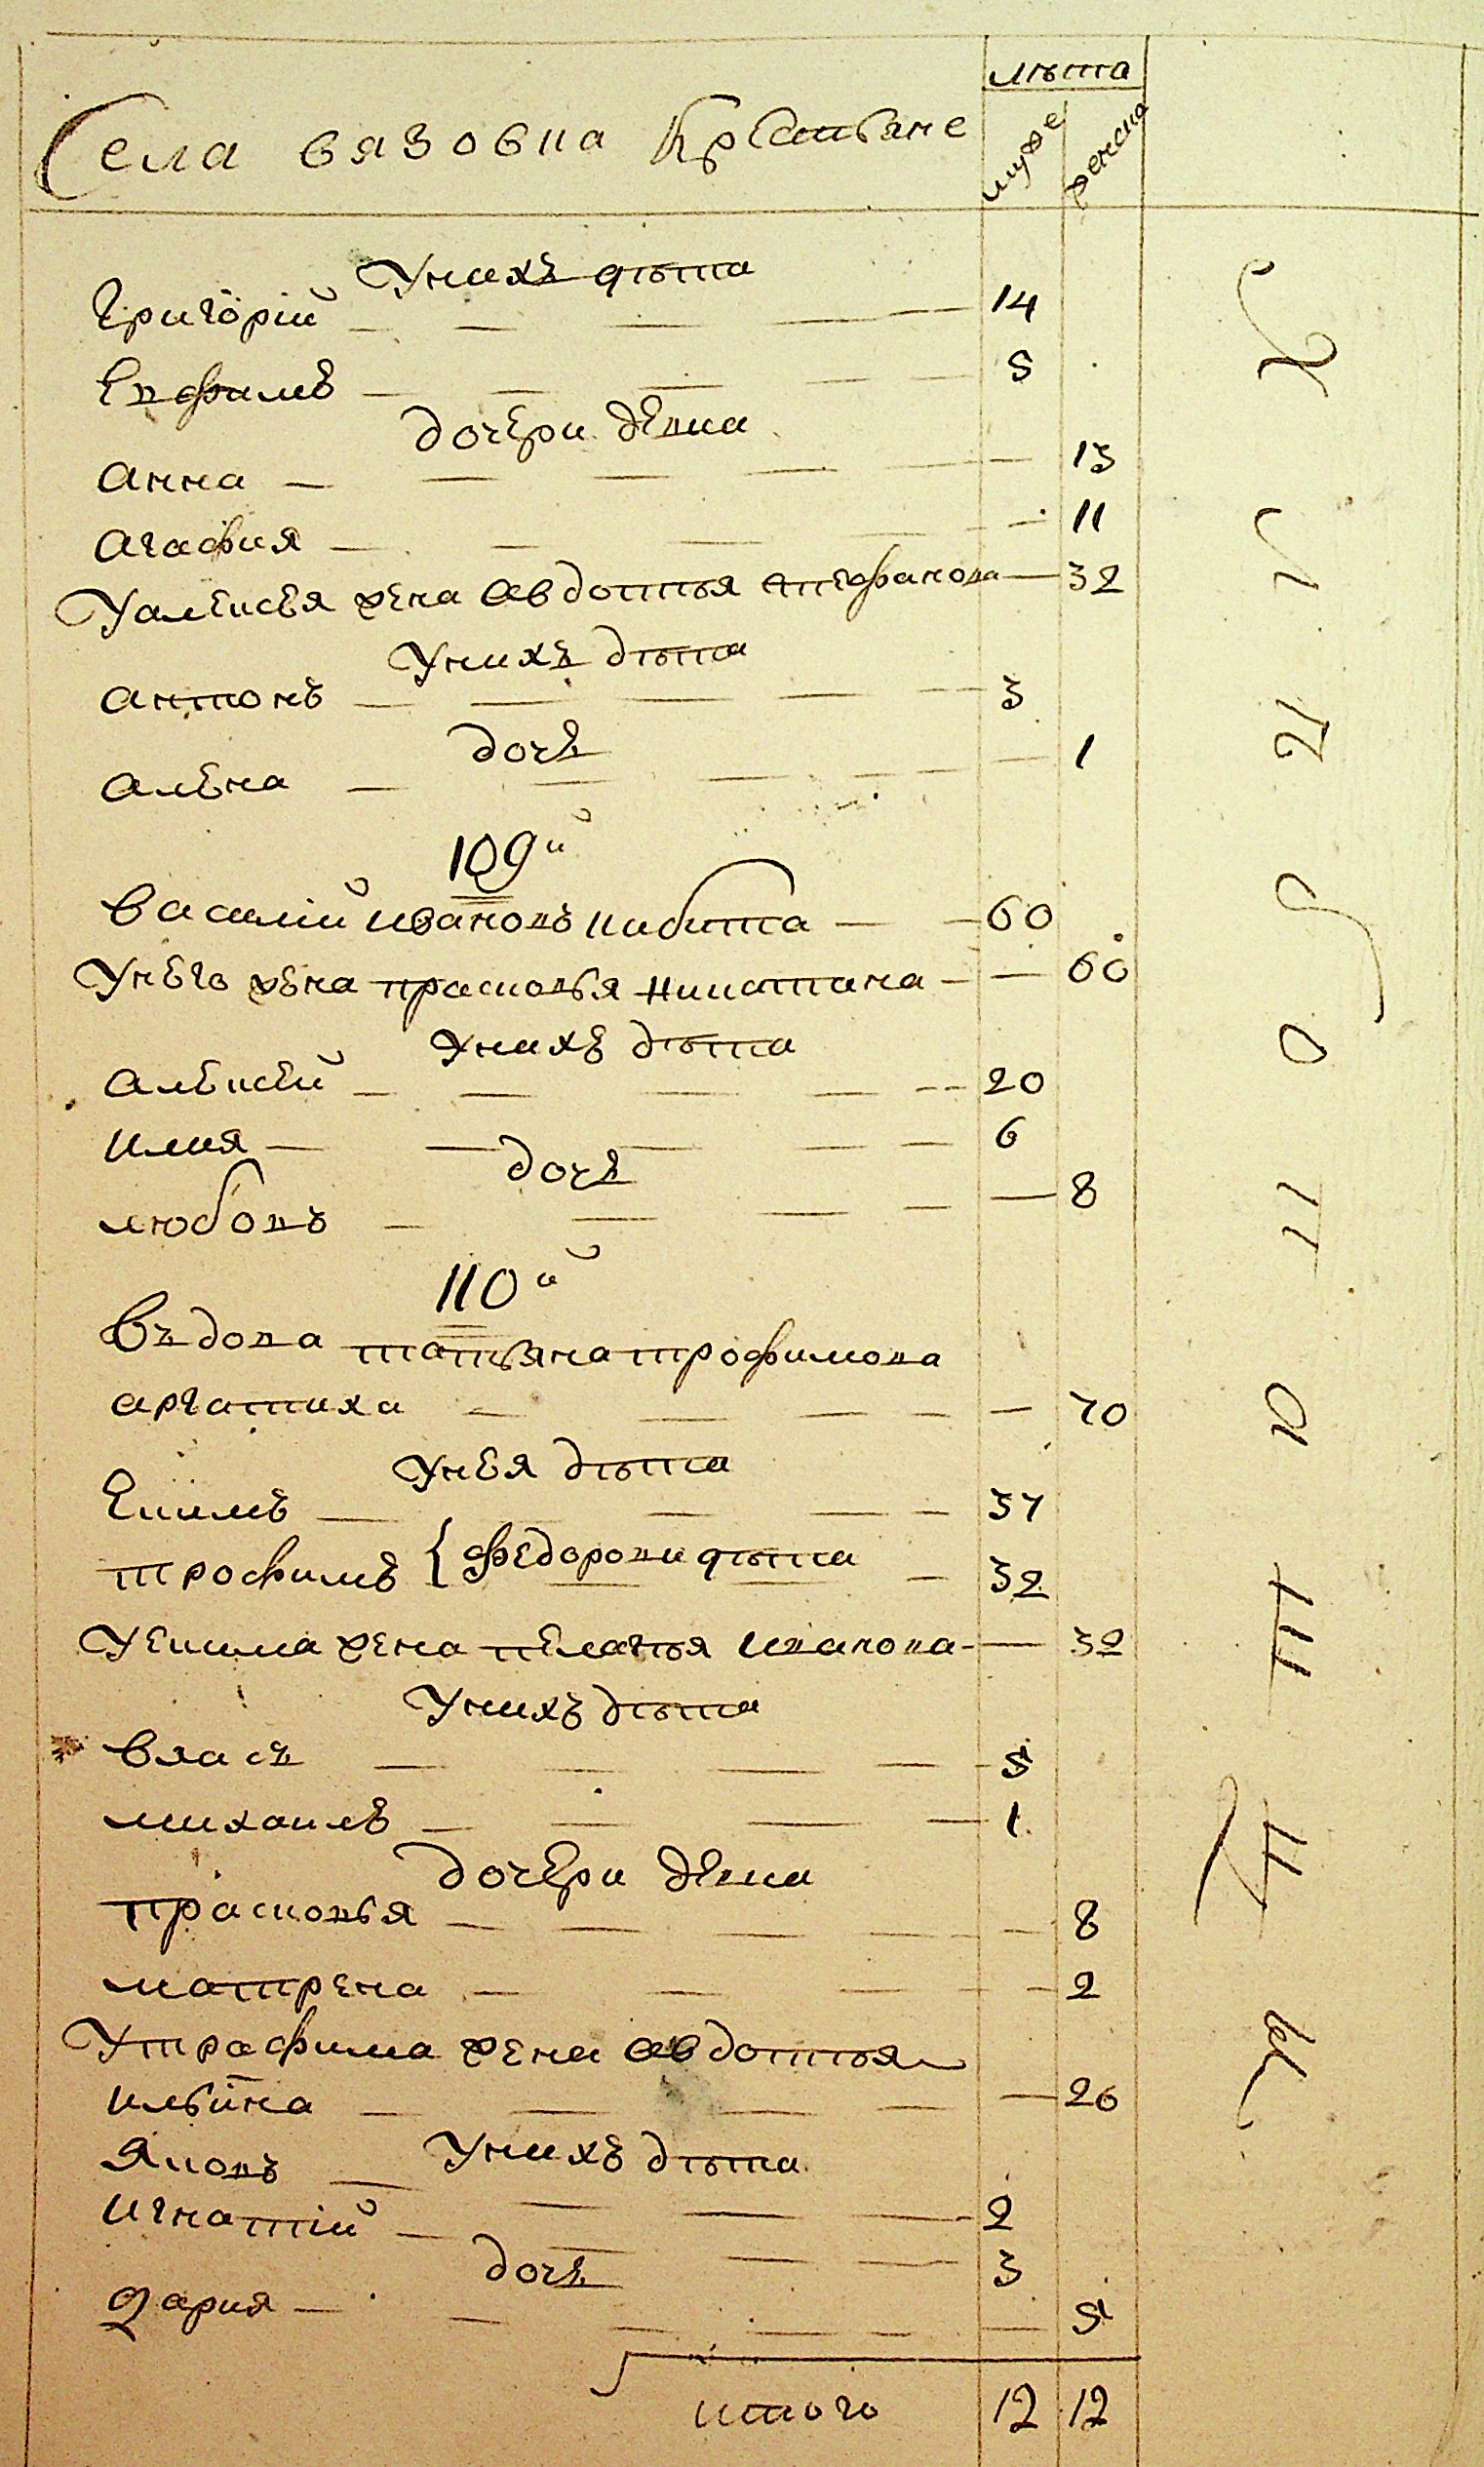 лѣта
Села вязовка Крестьяне
муже
женска
Унихъ дѣти
Григорій 14
Ермфимъ 5
дочери дѣвки
анна 13
агафия 11
Уалексея жена авдотья Стефанова 32
Унихъ дѣти
антонъ 3
дочь
алена 1
109й
василий ивановъ кибитка 60
Унего жена прасковья никитина 60
Унихъ дѣти
алексей 20
илия 6
дочь
любовь 8
110й
вдова татьяна трофимова
аргатиха 70
Унея дѣти
Екимъ 37
трофимъ { федоровы дѣти 32
Уекима жена пелагея иванова 32
Унихъ дѣти
власъ 5
михаилъ 1
дочери дѣвки
прасковья 8
матрена 2
Утрофима жена авдотья
ильина 26
Унихъ дѣти
Яковъ
игнатій 2
дочь 3
дария 5
итого 12 12